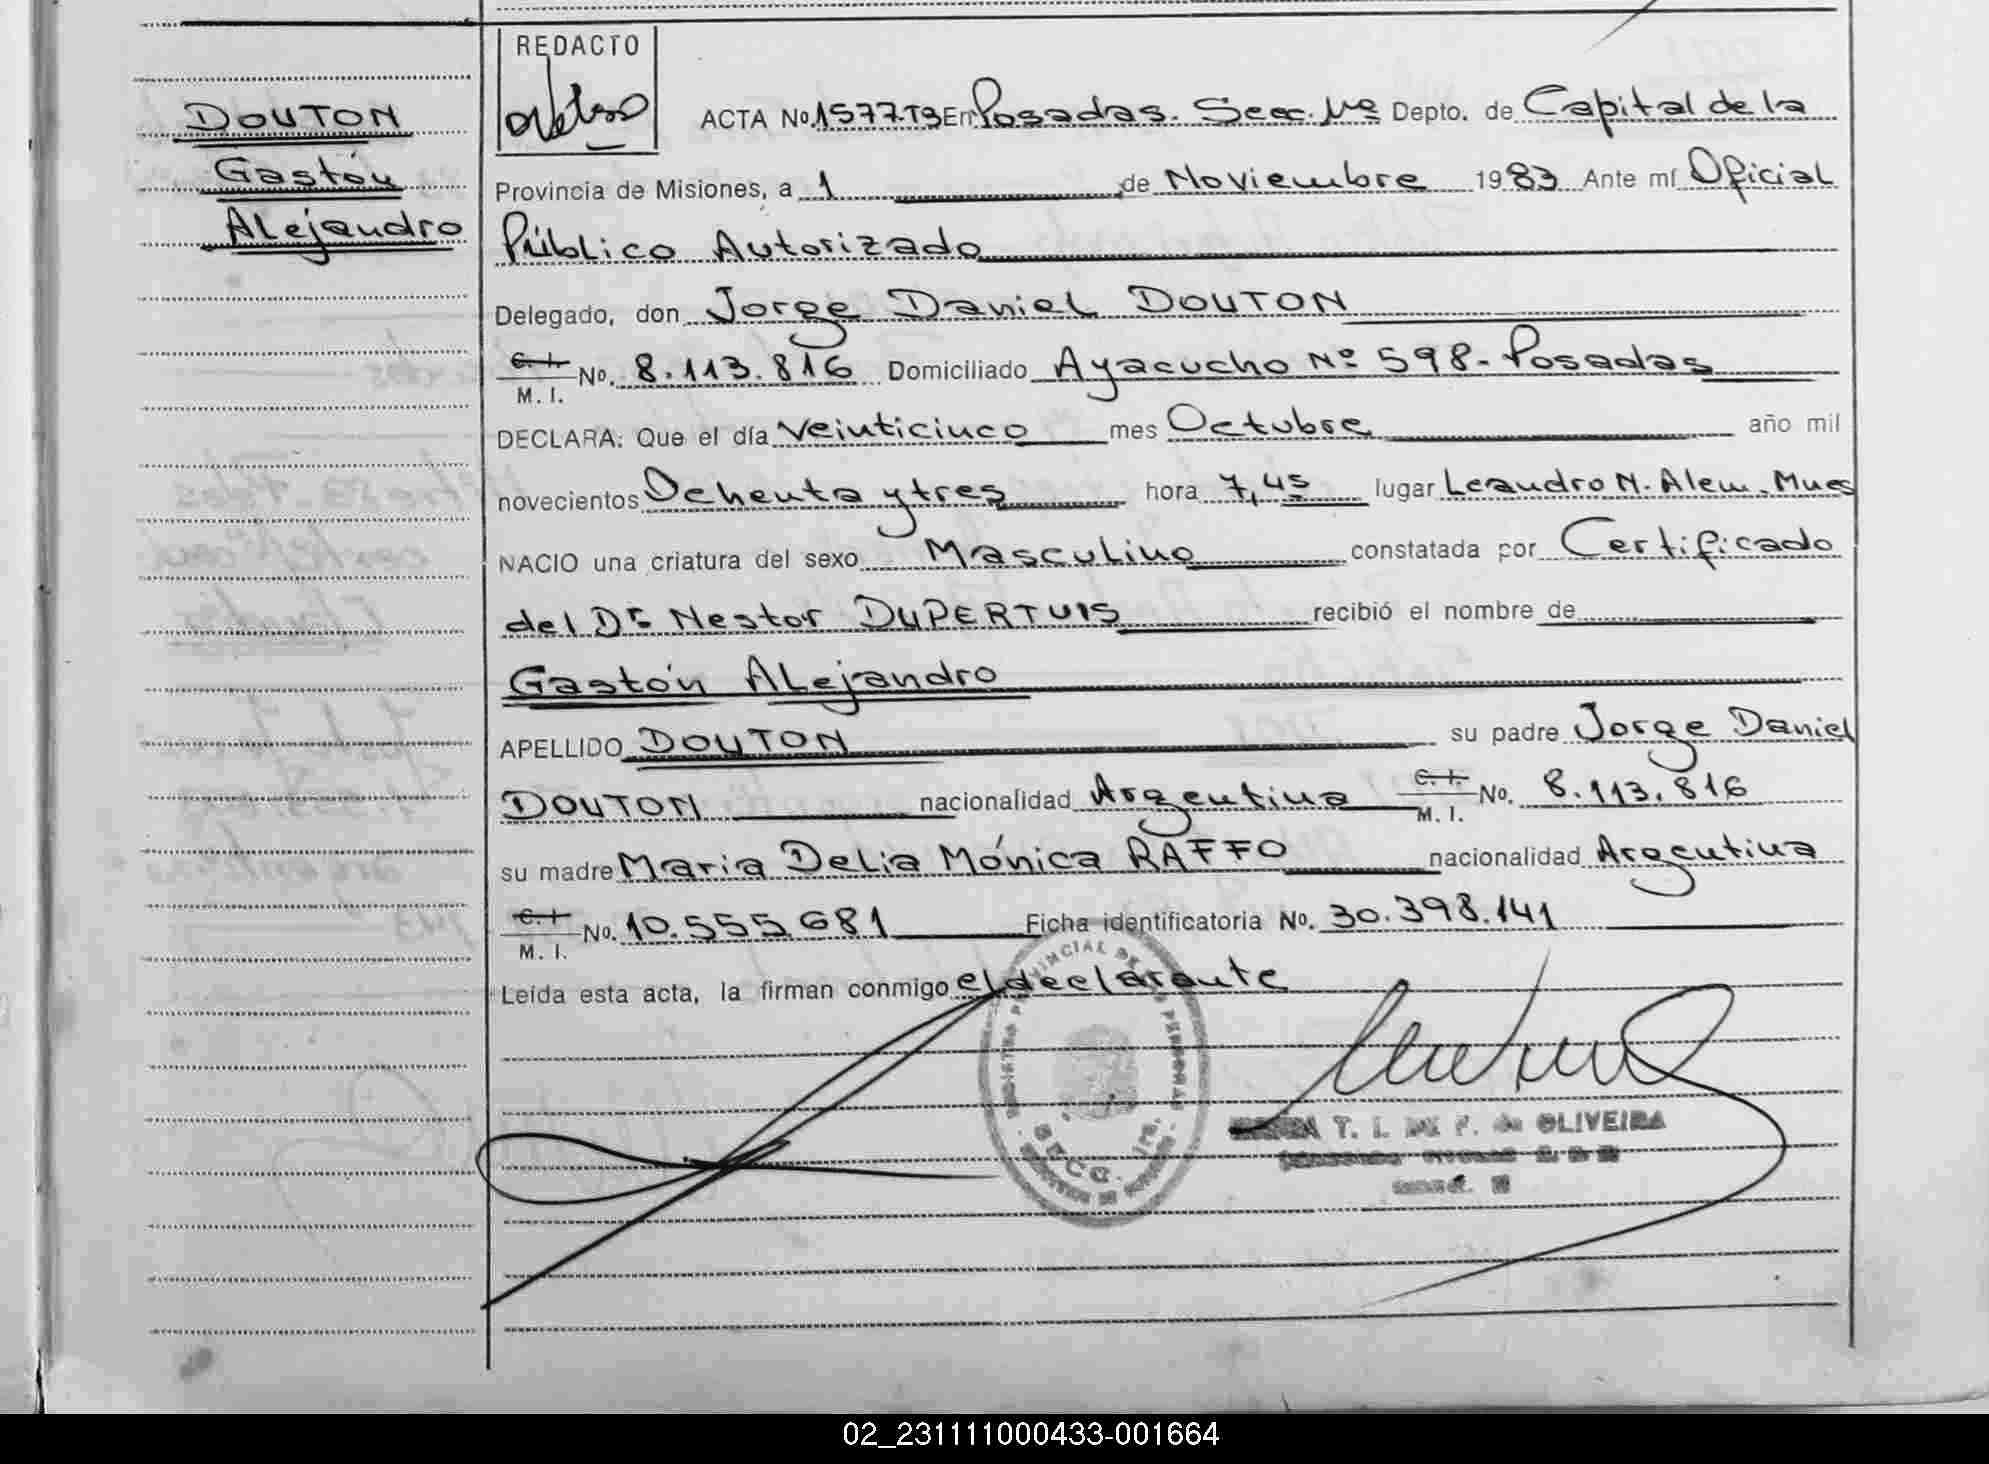 DOUTON
Gastón
Alejandro
REDACTO
ACTA No. 1577.T3 En Posadas. Secc. 1ra Depto. de Capital de la
Provincia de Misiones, a 1 de Noviembre 1983 Ante mí Oficial
Público Autorizado
Delegado, don Jorge Daniel DOUTON
C. I. M. I. No. 8.113.816 Domiciliado Ayacucho Nº 598 - Posadas
DECLARA: Que el día veinticinco mes Octubre año mil
novecientos Ochenta y tres hora 7,45 lugar Leandro N. Alem. Mnes
NACIO una criatura del sexo Masculino constatada por Certificado
del Dr Nestor DUPERTUIS recibió el nombre de
Gastón Alejandro
APELLIDO DOUTON su padre Jorge Daniel
DOUTON nacionalidad Argentina C. I. M. I. No. 8.113.816
su madre Maria Delia Mónica RAFFO nacionalidad Argentina
C. I. M. I. No. 10.555.681 Ficha identificatoria No. 30.398.141
Leida esta acta, la firman conmigo el declarante
T. I. DE F. de OLIVEIRA
02_231111000433-001664